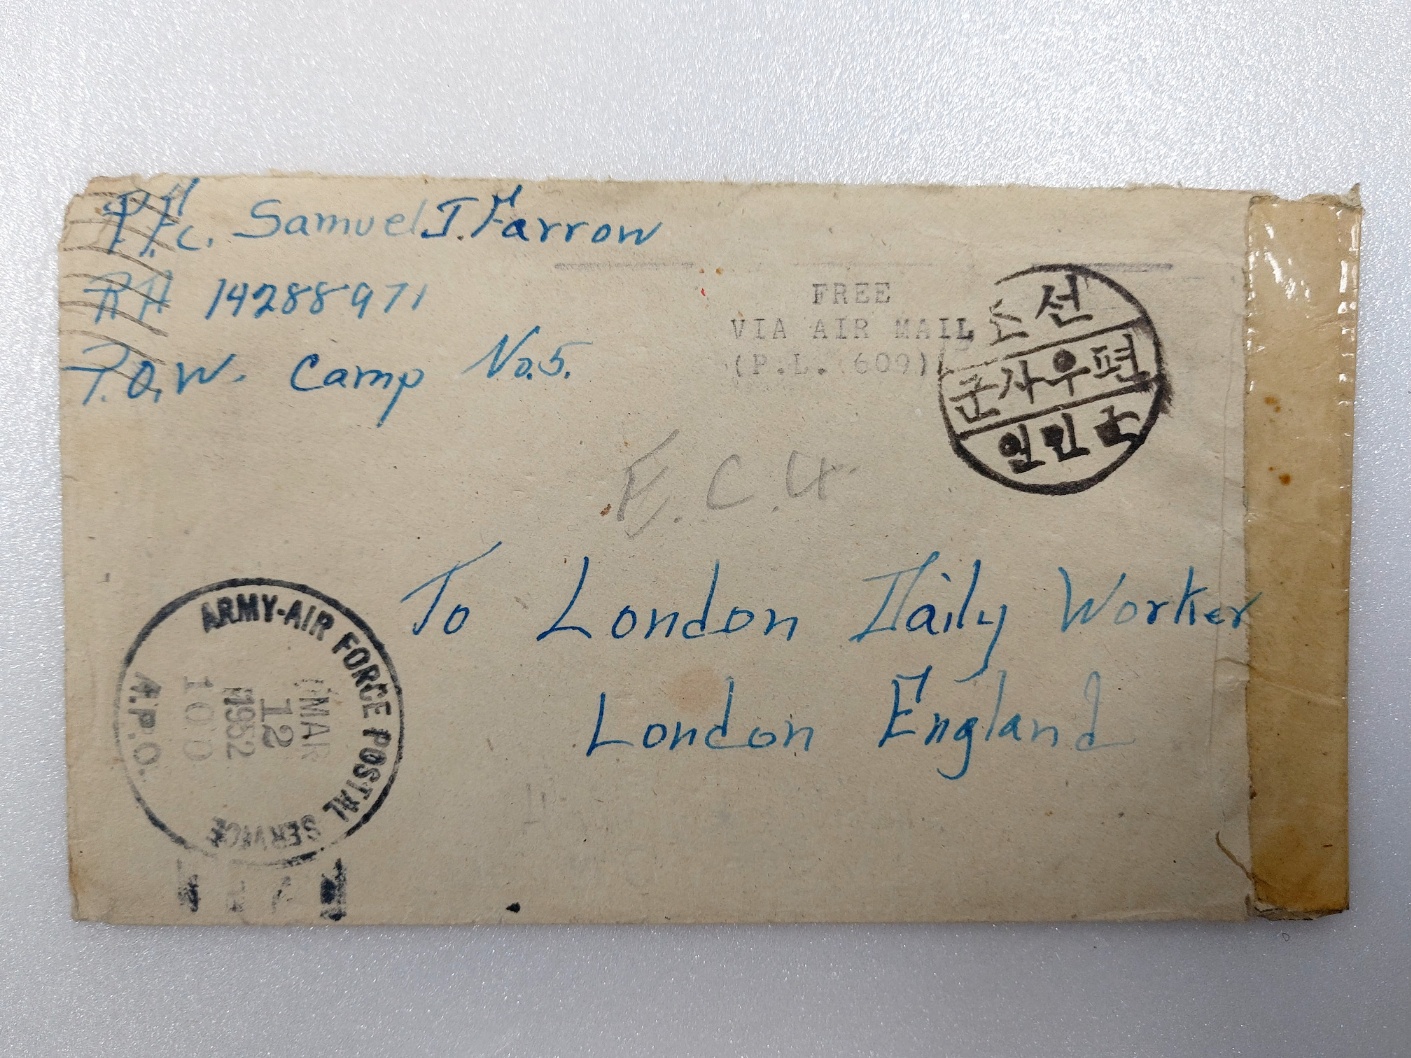 Pfc. Samuel J. Farrow
RA 14288971
P.O.W. Camp No. 5.
FREE
VIA AIR MAIL
(P.L. 609)
조선
군사우편
인민군
E.C.4
To London Daily Worker
London England
ARMY-AIR FORCE POSTAL SERVICE
MAR
12
1952
100
A.P.O.